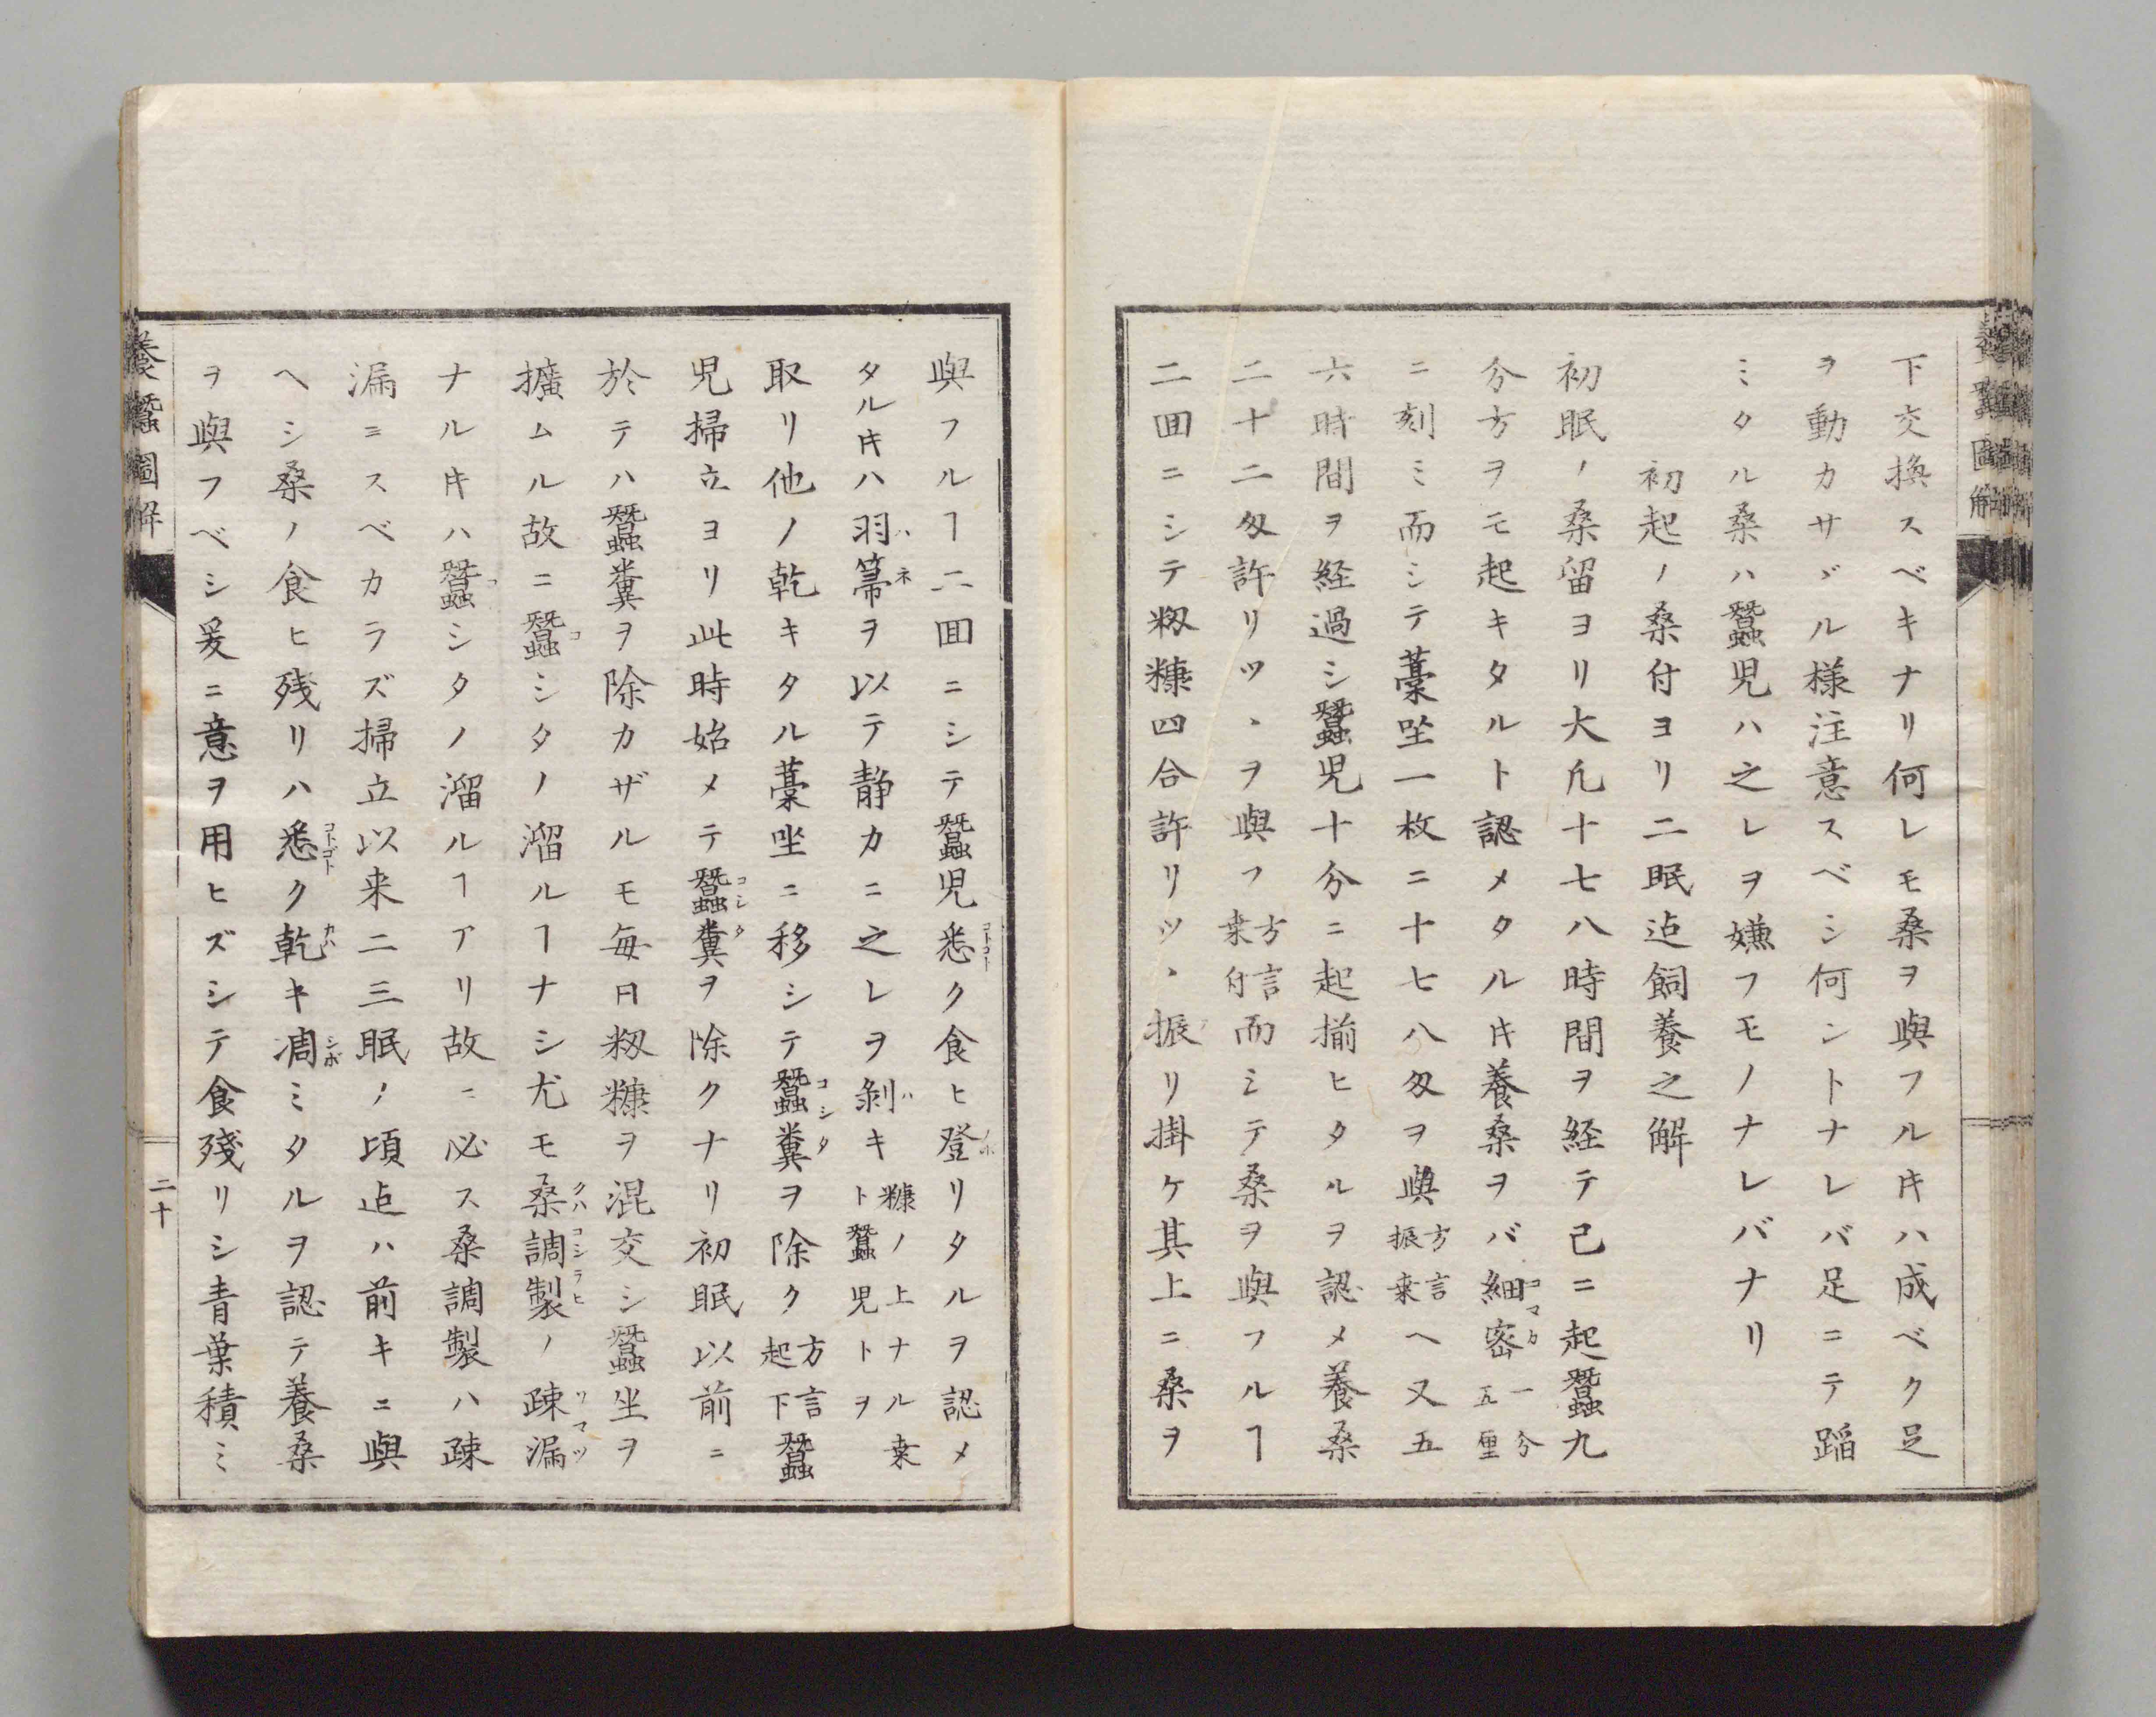 下交換スベキナリ何レモ桑ヲ與フル𪜈ハ成ベク足
ヲ動カサヾル様注意スベシ何ントナレバ足ニテ蹈
ミタル桑ハ蠶児ハ之レヲ嫌フモノナレバナリ
初起ノ桑付ヨリ二眠迠飼養之解
初眠ノ桑留ヨリ大凡十七八時間ヲ経テ已ニ起蠶九
分方ヲモ起キタルト認メタル𪜈養桑ヲバ細密一分五厘
コマカ
ニ刻ミ而シテ藁㘴一枚ニ十七八匁ヲ與方言振桒ヘ又五
六時間ヲ経過シ蠶児十分ニ起揃ヒタルヲ認メ養桑
二十二匁許リツヽヲ與フ方言桒付而シテ桑ヲ與フルヿ
二囬ニシテ籾糠四合許リツヽ振リ掛ケ其上ニ桑ヲ
養蠶圖解
與フルヿ二囬ニシテ蠶児悉ク食ヒ登リタルヲ認メ
コトゴト
ノボ
タル𪜈ハ羽箒ヲ以テ静カニ之レヲ剝キ糠ノ上ナル桒ト蠶児トヲ
ハネ
ハ
取リ他ノ乾キタル藁㘴ニ移シテ蠶糞ヲ除ク方言起下蠶
コシタ
児掃立ヨリ此時始メテ蠶糞ヲ除クナリ初眠以前ニ
コシタ
於テハ蠶糞ヲ除カザルモ毎日籾糠ヲ混交シ蠶坐ヲ
擴ムル故ニ蠶シタノ溜ルヿナシ尤モ桑調製ノ疎漏
コ
クハコシラヒ
ソマツ
ナル𪜈ハ蠶シタノ溜ルヿアリ故ニ必ス桑調製ハ疎
コ
漏ニスベカラズ掃立以来二三眠ノ頃迠ハ前キニ與
ヘシ桑ノ食ヒ残リハ悉ク乾キ凋ミタルヲ認テ養桑
コトゴト
カハ
シボ
ヲ與フベシ爰ニ意ヲ用ヒズシテ食殘リシ青葉積ミ
養蠶圖解
二十